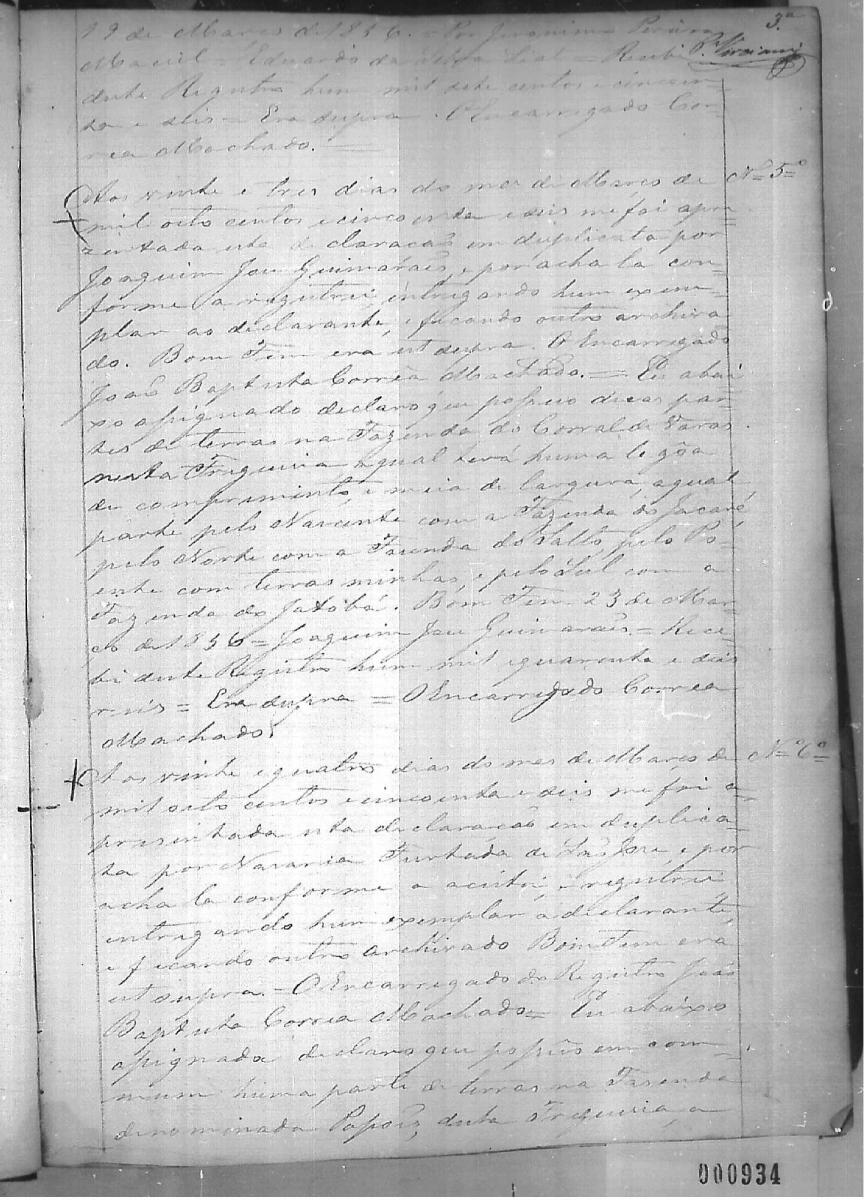 3.ª
19 de Março de 1856. = Por Jeronimo Pereira
Maciel = Eduardo da Leal = Recebi
deste Registro hum mil sete centos e cincoen-
ta e seis = Era supra. O Encarregado Cor-
rea Machado. =
Nº 5º
Aos vinte e tres dias do mes de Março de
mil oito centos e cincoenta e seis me foi apre-
zentada esta declaracaõ em duplicata por
Joaquim Jose Guimaraẽs, e por acha la con-
forme a registrei, entregando hum exem-
plar ao declarante, e ficando outro archiva-
do. Bom Fim era ut supra. O Encarregado
Joaõ Baptista Corrêa Machado. = Eu abai-
xo assignado declaro que possuo duas par-
tes de terras na Fazenda do Corral de Varas
nesta Freguezia aqual terá huma legôa
de comprimento, e meia de largura, aqual
parte pelo Nascente com a Fazenda do Jacaré,
pelo Norte com a Fazenda do Salto, pelo Po-
ente com terras minhas, e pelo Sul com a
Fazenda do Jatobá. Bom Fim 23 de Mar-
ço de 1856 = Joaquim Jose Guimaraẽs. = Rece-
bi deste Registro hum mil e quarenta e dois
reis = Era supra = O Encarregado Correa
Machado.
Nº 6º
Aos vinte e quatro dias do mes de Março de
mil oito centos e cincoenta e seis me foi a-
presentada esta declaracaõ em duplica-
ta por Furtada de Saõ Jose, e por
acha la conforme a aceitei, e registrei,
entregando hum exemplar a declarante,
e ficando outro archivado Bom Fim era
ut supra. = O Encarregado do Registro Joaõ
Baptista Correa Machado = Eu abaixo
assignada declaro que possuo em com-
mum huma parte de terras na Fazenda
denominada desta Freguezia, a
000934